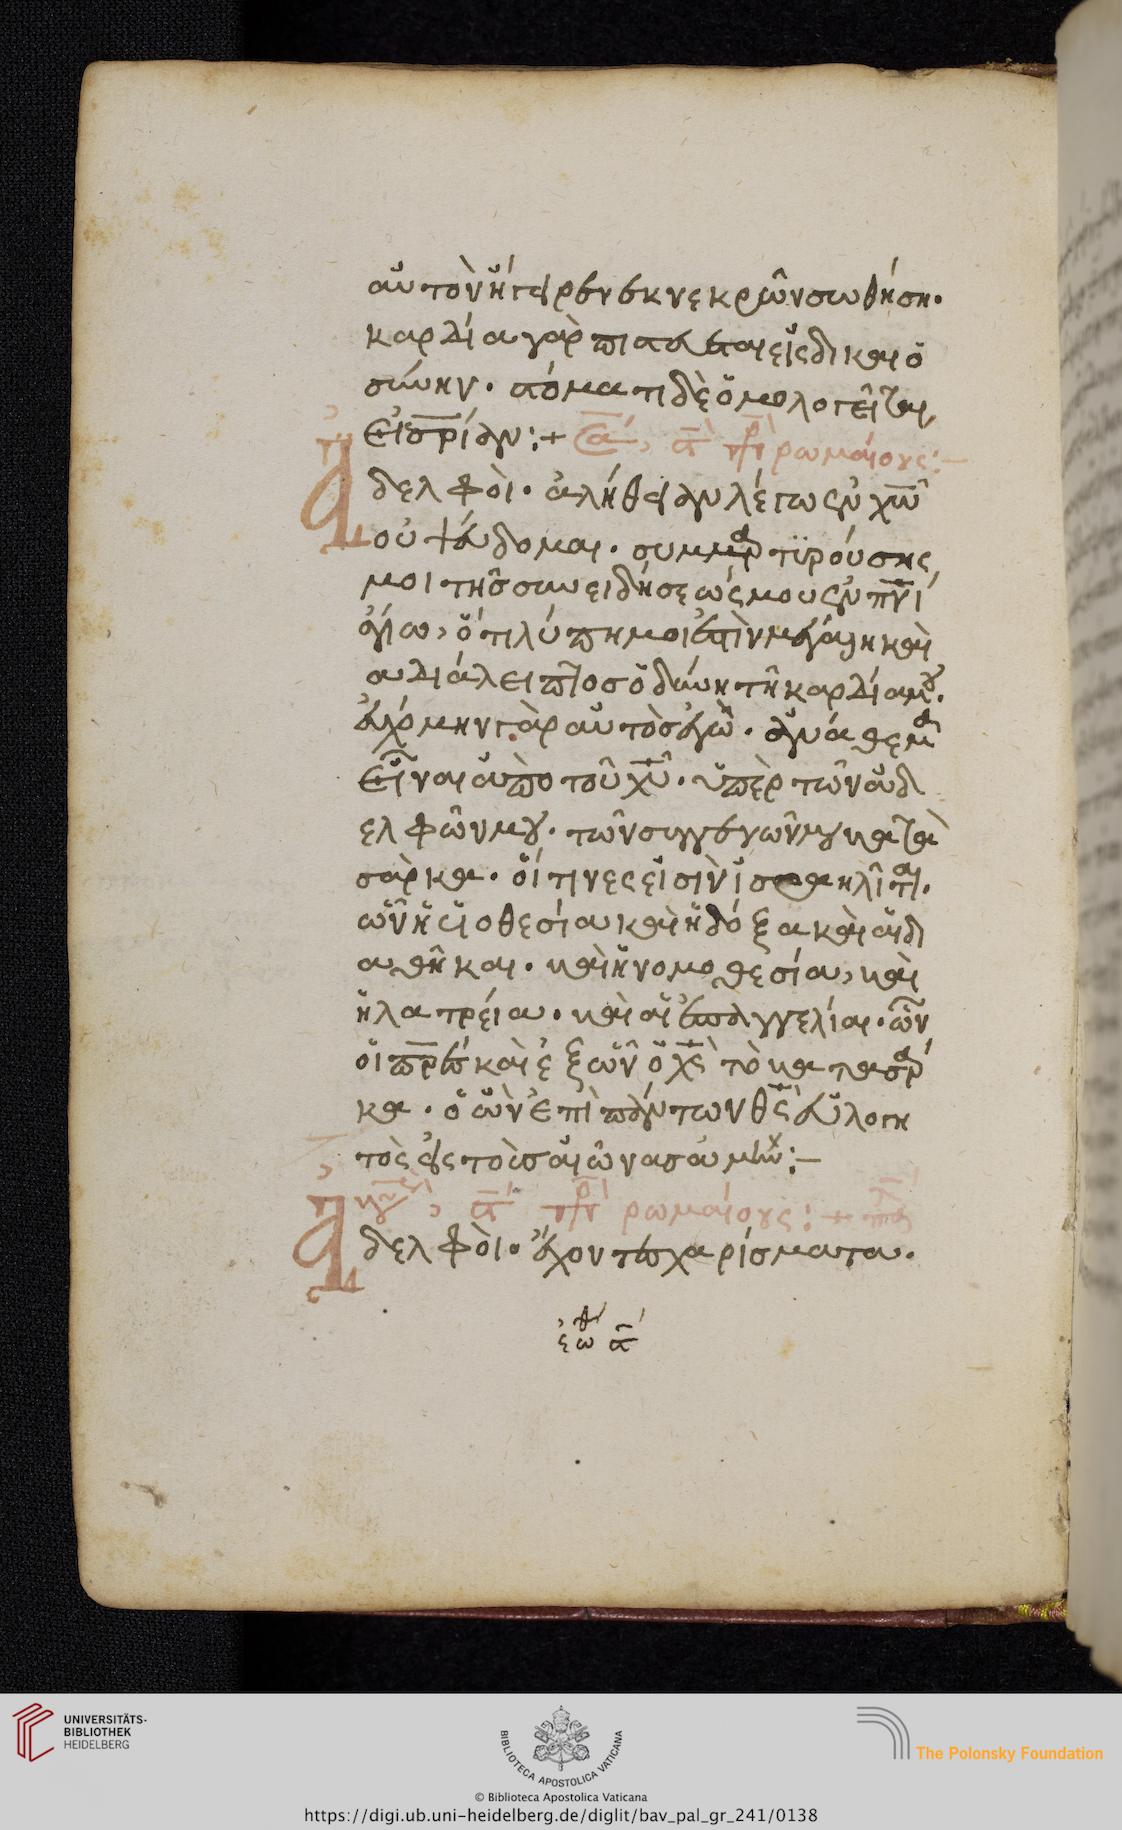 αὐτὸν ἤγειρεν ἐκ νεκρῶν σωθήση.
καρδία γὰρ πιστεύεται εἰς δικαιο
σύνην. στόματι δὲ ὁμολογεῖται
εἰς σ̅ρ̅ίαν:+ π̅ρ̅ ρωμαίους:–
Αδελφοὶ. ἀλήθειαν λέγω ἐν χ̅ω̅
οὐ ψεύδομαι. συμμαρτυρούσης
μοι τῆς συνειδήσεώς μου ἐν π̅ν̅ι
ἁγίω, ὅτι λύπη μοι ἐστὶν μεγάλη καὶ
αδιάλειπτος ὀδύνη τῆ καρδία μου.
εὐχόμην γὰρ αὐτὸς ἐγὼ. ἀνάθεμα
εἶναι ἀπὸ τοῦ χ̅υ̅. ὑπὲρ τῶν ἀδ
ελφῶν μου. τῶν συγγενῶν μου κατὰ
σάρκα. οἵτινες εἰσὶν ἰσραηλῖται.
ὧν ἡ υἱοθεσία καὶ ἡ δόξα καὶ αἱ δι
αθῆκαι. καὶ ἡ νομοθεσία, καὶ
ἡ λατρεία. καὶ αἱ ἐπαγγελίαι. ὧν
οἱ π̅ρ̅ες καὶ ἐξ ὧν ὁ χ̅ς̅ τὸ κατα σάρ
κα. ὁ ὢν ἐπὶ πάντων θ̅ς̅ εὐλογη
τὸς εἰς τοὺς αἰῶνας ἀμήν:–
π̅ρ̅ ρωμαίους:+
Αδελφοὶ. ἔχοντες χαρίσματα.
UNIVERSITÄTS-
BIBLIOTHEK
HEIDELBERG
BIBLIOTECA APOSTOLICA VATICANA
The Polonsky Foundation
© Biblioteca Apostolica Vaticana
https://digi.ub.uni-heidelberg.de/diglit/bav_pal_gr_241/0138